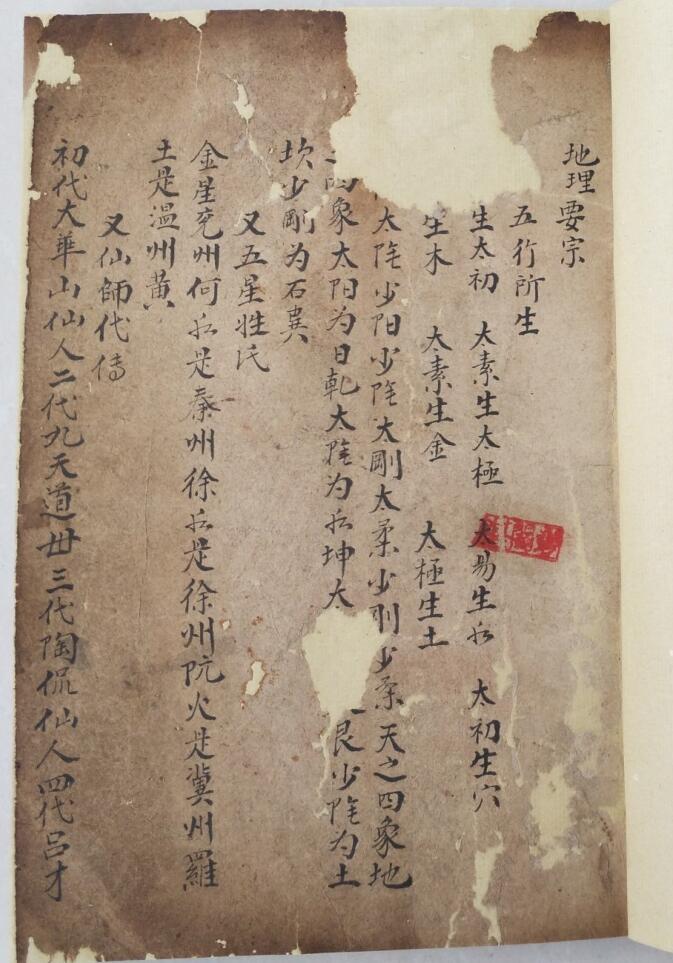 地理要宗
五行所生
生太初 太素生太極 太易生水 太初生穴
生木 太素生金 太極生土
太陰少阳少陰太剛太柔少剛少柔天之四象地
之四象太阳为日乾太陰为水坤太 艮少陰为土
坎少剛为石巽
又五星姓氏
金星兖州何水是秦州徐水是徐州阮火是冀州羅
土是温州黄
又仙師代传
初代大華山仙人二代九天道毌三代陶侃仙人四代吕才